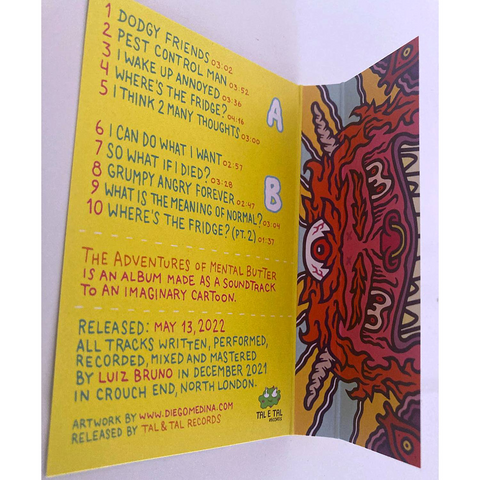 1 DODGY FRIENDS 03:02
2 PEST CONTROL MAN 03:52
3 I WAKE UP ANNOYED 03:36
4 WHERE'S THE FRIDGE? 04:16
5 I THINK 2 MANY THOUGHTS 03:00
A
6 I CAN DO WHAT I WANT 02:57
7 SO WHAT IF I DIED? 03:28
8 GRUMPY ANGRY FOREVER 02:47
9 WHAT IS THE MEANING OF NORMAL? 03:04
10 WHERE'S THE FRIDGE? (PT. 2) 01:57
B
THE ADVENTURES OF MENTAL BUTTER
IS AN ALBUM MADE AS A SOUNDTRACK
TO AN IMAGINARY CARTOON.
RELEASED: MAY 13, 2022
ALL TRACKS WRITTEN, PERFORMED,
RECORDED, MIXED AND MASTERED
BY LUIZ BRUNO IN DECEMBER 2021
IN CROUCH END, NORTH LONDON.
ARTWORK BY WWW.DIEGOMEDINA.COM
RELEASED BY TAL & TAL RECORDS
TAL E TAL
RECORDS